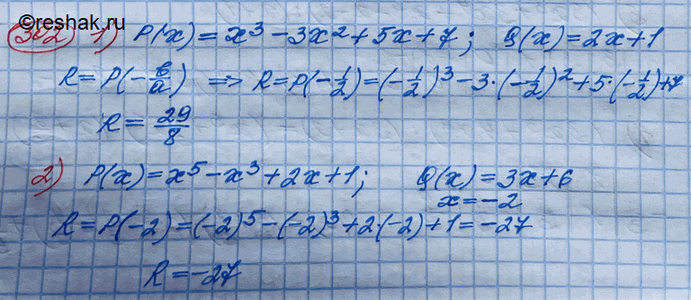 ©reshak.ru
362 1) P(x) = x³ − 3x² + 5x + 7; Q(x) = 2x + 1
R = P(−b/a) ⇒ R = P(−1/2) = (−1/2)³ − 3·(−1/2)² + 5·(−1/2) + 7
R = 29/8
2) P(x) = x⁵ − x³ + 2x + 1; Q(x) = 3x + 6
x = −2
R = P(−2) = (−2)⁵ − (−2)³ + 2·(−2) + 1 = −27
R = −27